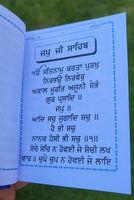 ਜਪੁ ਜੀ ਸਾਹਿਬ
ੴ ਸਤਿਨਾਮੁ ਕਰਤਾ ਪੁਰਖੁ
ਨਿਰਭਉ ਨਿਰਵੈਰੁ
ਅਕਾਲ ਮੂਰਤਿ ਅਜੂਨੀ ਸੈਭੰ
ਗੁਰ ਪ੍ਰਸਾਦਿ ॥
॥ ਜਪੁ ॥
ਆਦਿ ਸਚੁ ਜੁਗਾਦਿ ਸਚੁ ॥
ਹੈ ਭੀ ਸਚੁ
ਨਾਨਕ ਹੋਸੀ ਭੀ ਸਚੁ ॥੧॥
ਸੋਚੈ ਸੋਚਿ ਨ ਹੋਵਈ ਜੇ ਸੋਚੀ ਲਖ
ਵਾਰ ॥ ਚੁਪੈ ਚੁਪ ਨ ਹੋਵਈ ਜੇ ਲਾਇ